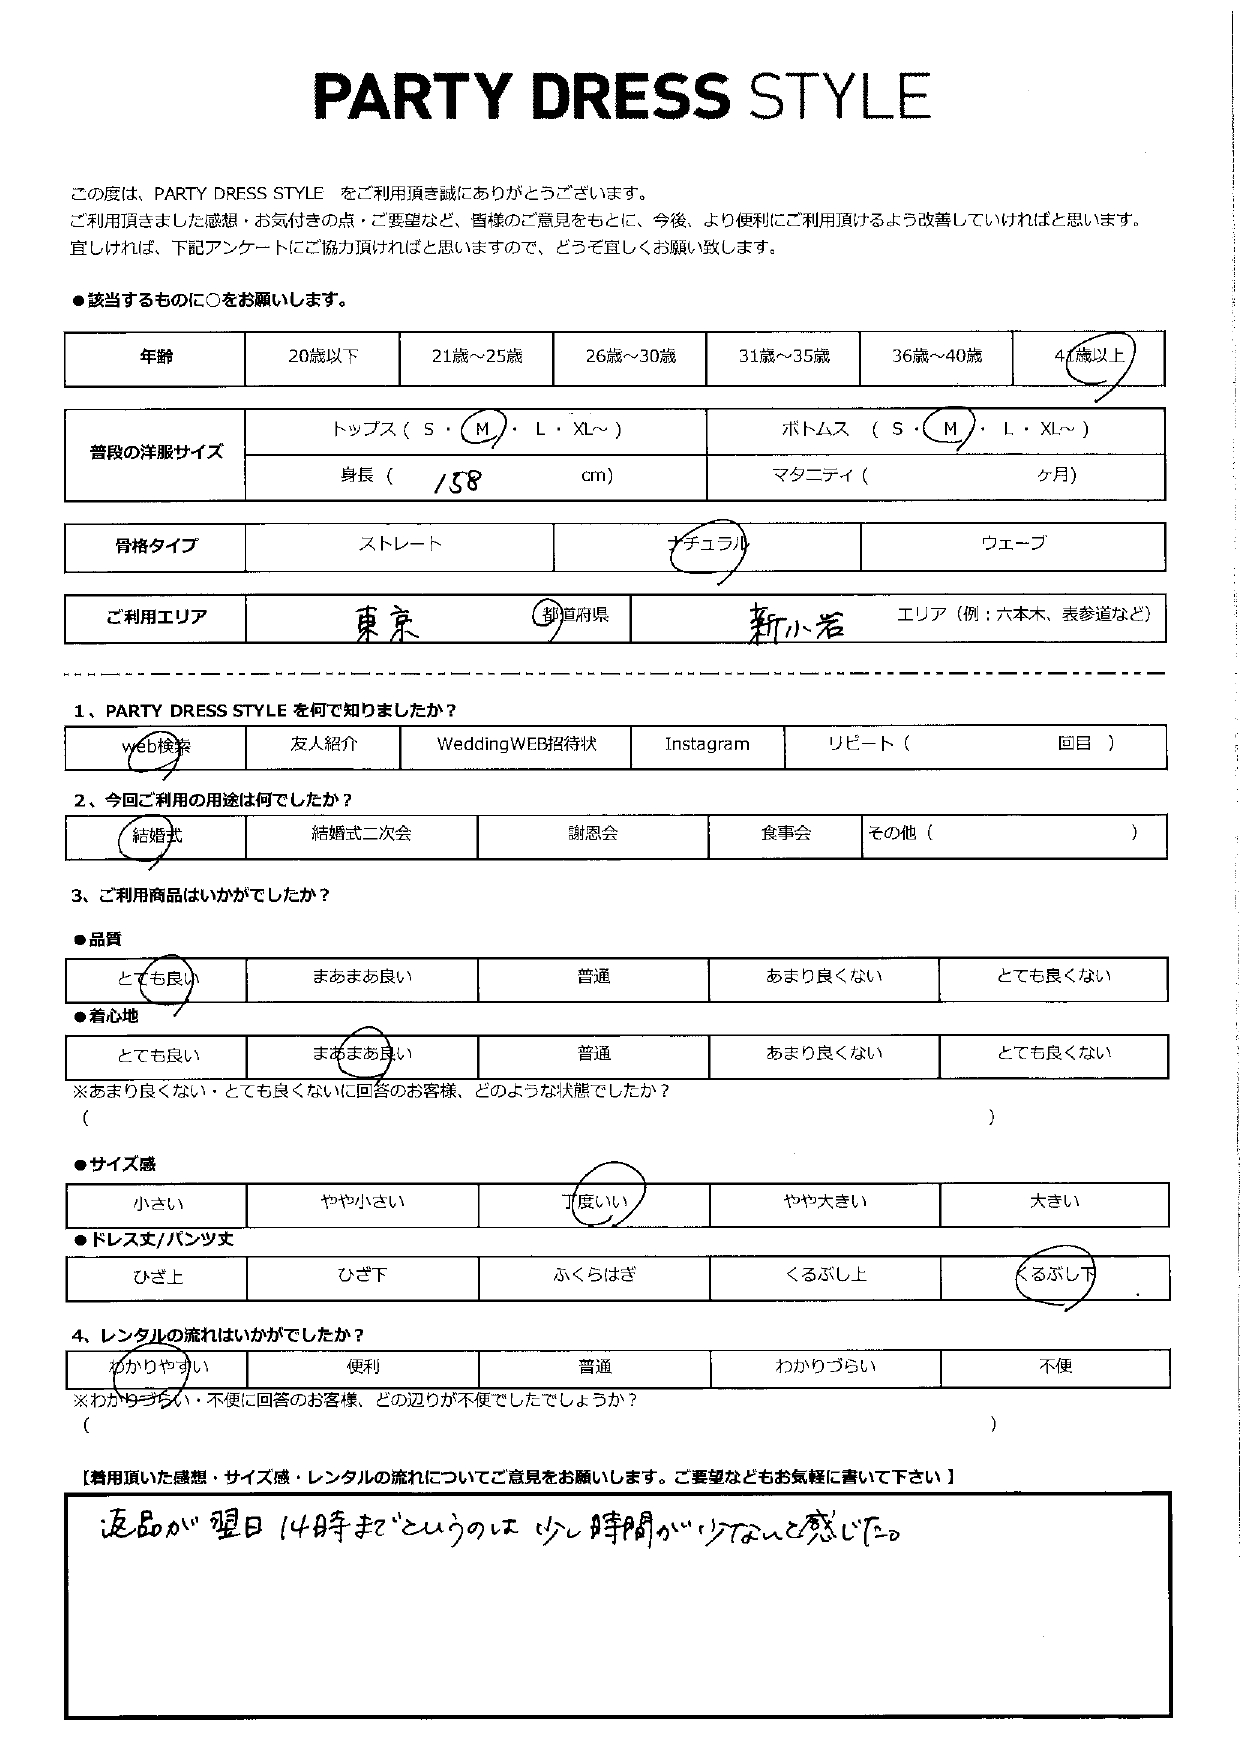 PARTY DRESS STYLE
この度は、PARTY DRESS STYLE をご利用頂き誠にありがとうございます。
ご利用頂きました感想・お気付きの点・ご要望など、皆様のご意見をもとに、今後、より便利にご利用頂けるよう改善していければと思います。
宜しければ、下記アンケートにご協力頂ければと思いますので、どうぞ宜しくお願い致します。
●該当するものに○をお願いします。
年齢 20歳以下 21歳～25歳 26歳～30歳 31歳～35歳 36歳～40歳 41歳以上
普段の洋服サイズ トップス ( S ・ M ・ L ・ XL～ ) ボトムス ( S ・ M ・ L ・ XL～ )
身長 ( 158 cm) マタニティ ( ヶ月)
骨格タイプ ストレート ナチュラル ウェーブ
ご利用エリア 東京 都道府県 新小岩 エリア（例：六本木、表参道など）
1、PARTY DRESS STYLE を何で知りましたか？
web検索 友人紹介 WeddingWEB招待状 Instagram リピート ( 回目 )
2、今回ご利用の用途は何でしたか？
結婚式 結婚式二次会 謝恩会 食事会 その他 ( )
3、ご利用商品はいかがでしたか？
●品質
とても良い まあまあ良い 普通 あまり良くない とても良くない
●着心地
とても良い まあまあ良い 普通 あまり良くない とても良くない
※あまり良くない・とても良くないに回答のお客様、どのような状態でしたか？
( )
●サイズ感
小さい やや小さい 丁度いい やや大きい 大きい
●ドレス丈/パンツ丈
ひざ上 ひざ下 ふくらはぎ くるぶし上 くるぶし下
4、レンタルの流れはいかがでしたか？
わかりやすい 便利 普通 わかりづらい 不便
※わかりづらい・不便に回答のお客様、どの辺りが不便でしたでしょうか？
( )
【着用頂いた感想・サイズ感・レンタルの流れについてご意見をお願いします。ご要望などもお気軽に書いて下さい 】
返品が翌日14時までというのは少し時間が少ないと感じた。